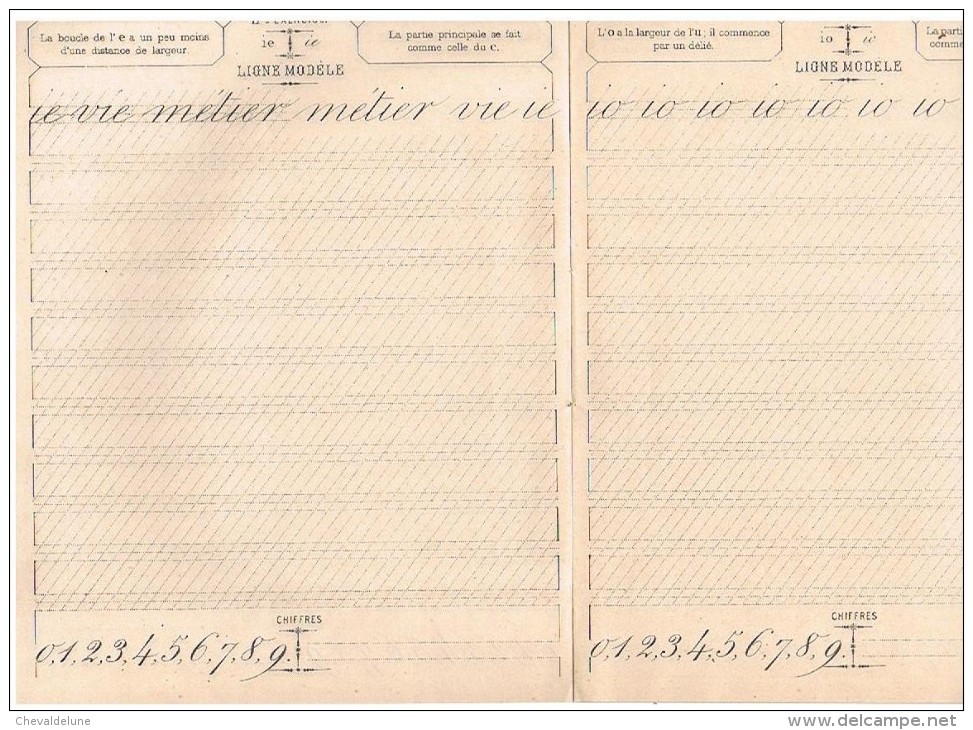 La boucle de l'e a un peu moins
d'une distance de largeur.
ie ie
La partie principale se fait
comme celle du c.
LIGNE MODÈLE
ie vie métier métier vie ie
CHIFFRES
0,1,2,3,4,5,6,7,8,9.
L'o a la largeur de l'u; il commence
par un délié.
io io
La parti
comme
LIGNE MODÈLE
io io io io io io io
CHIFFRES
0,1,2,3,4,5,6,7,8,9.
Chevaldelune
www.delcampe.net